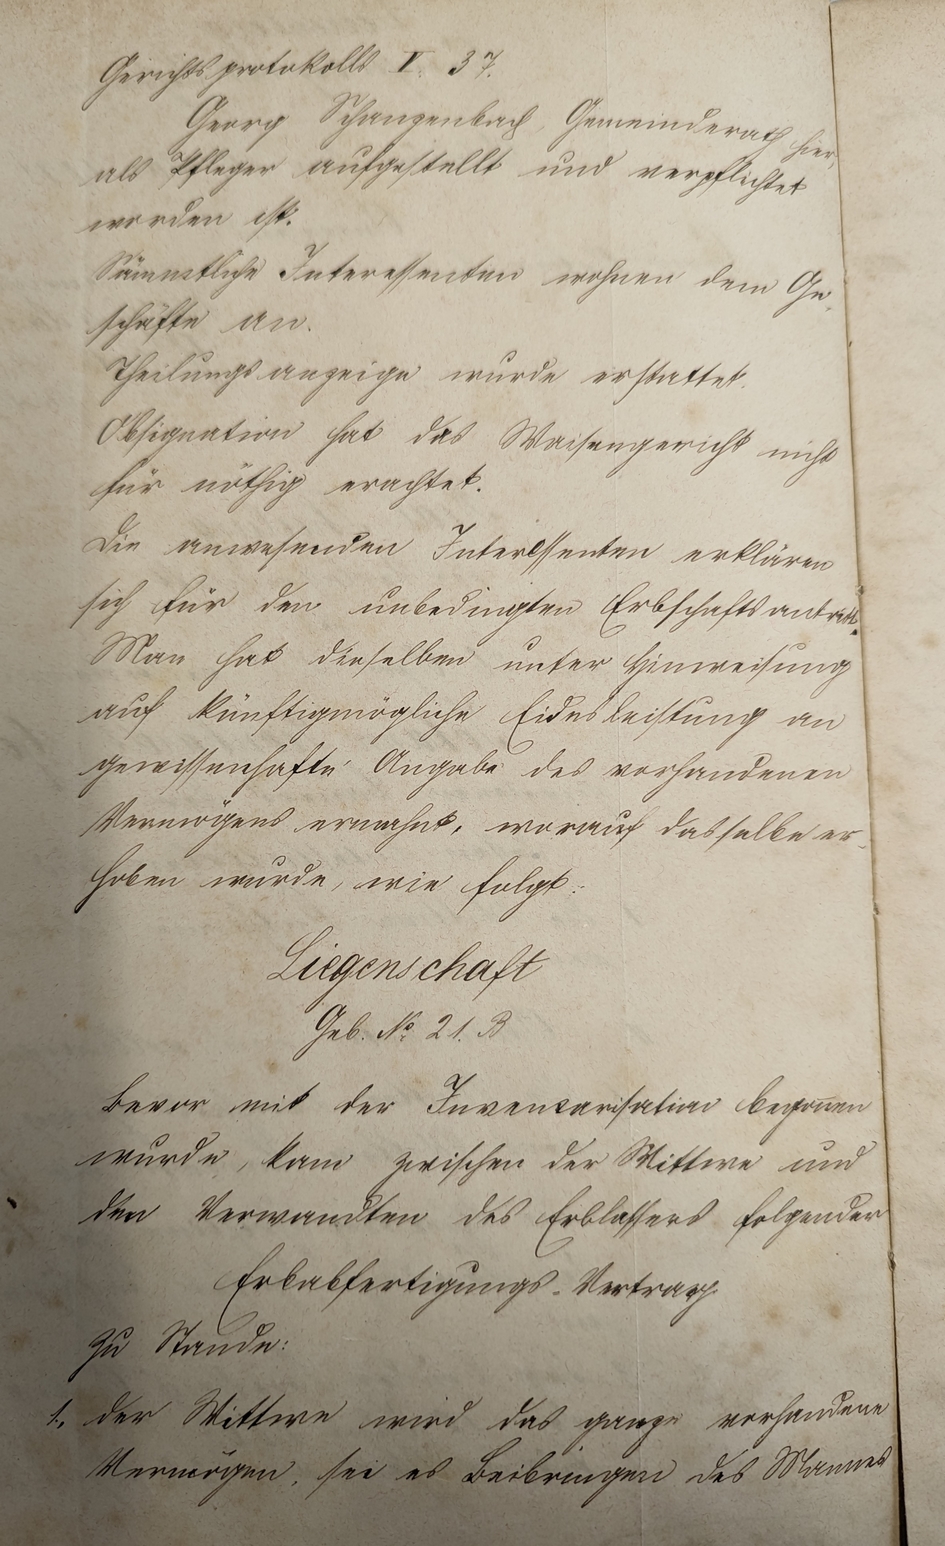 Gerichtsprotokolls I. 37.
Georg Schanzenbach, Gemeinderath hier,
als Pfleger aufgestellt und verpflichtet
worden ist.
Sämmtliche Interessenten wohnen dem Ge-
schäfte an.
Theilungsanzeige wurde erstattet.
Obsignation hat das Waisengericht nicht
für nöthig erachtet.
Die anwesenden Interessenten erklären
sich für den unbedingten Erbschaftsantritt.
Man hat dieselben unter Hinweisung
auf künftigmögliche Eidesleistung an
gewissenhafte Angabe des vorhandenen
Vermögens ermahnt, worauf dasselbe er-
hoben wurde, wie folgt:
Liegenschaft
Geb. No 21. B
Bevor mit der Inventarisation begonnen
wurde, kam zwischen der Wittwe und
den Verwandten des Erblassers folgender
Erbabfertigungs-Vertrag
zu Stande:
1., der Wittwe wird das ganze vorhandene
Vermögen, sei es Beibringen des Mannes